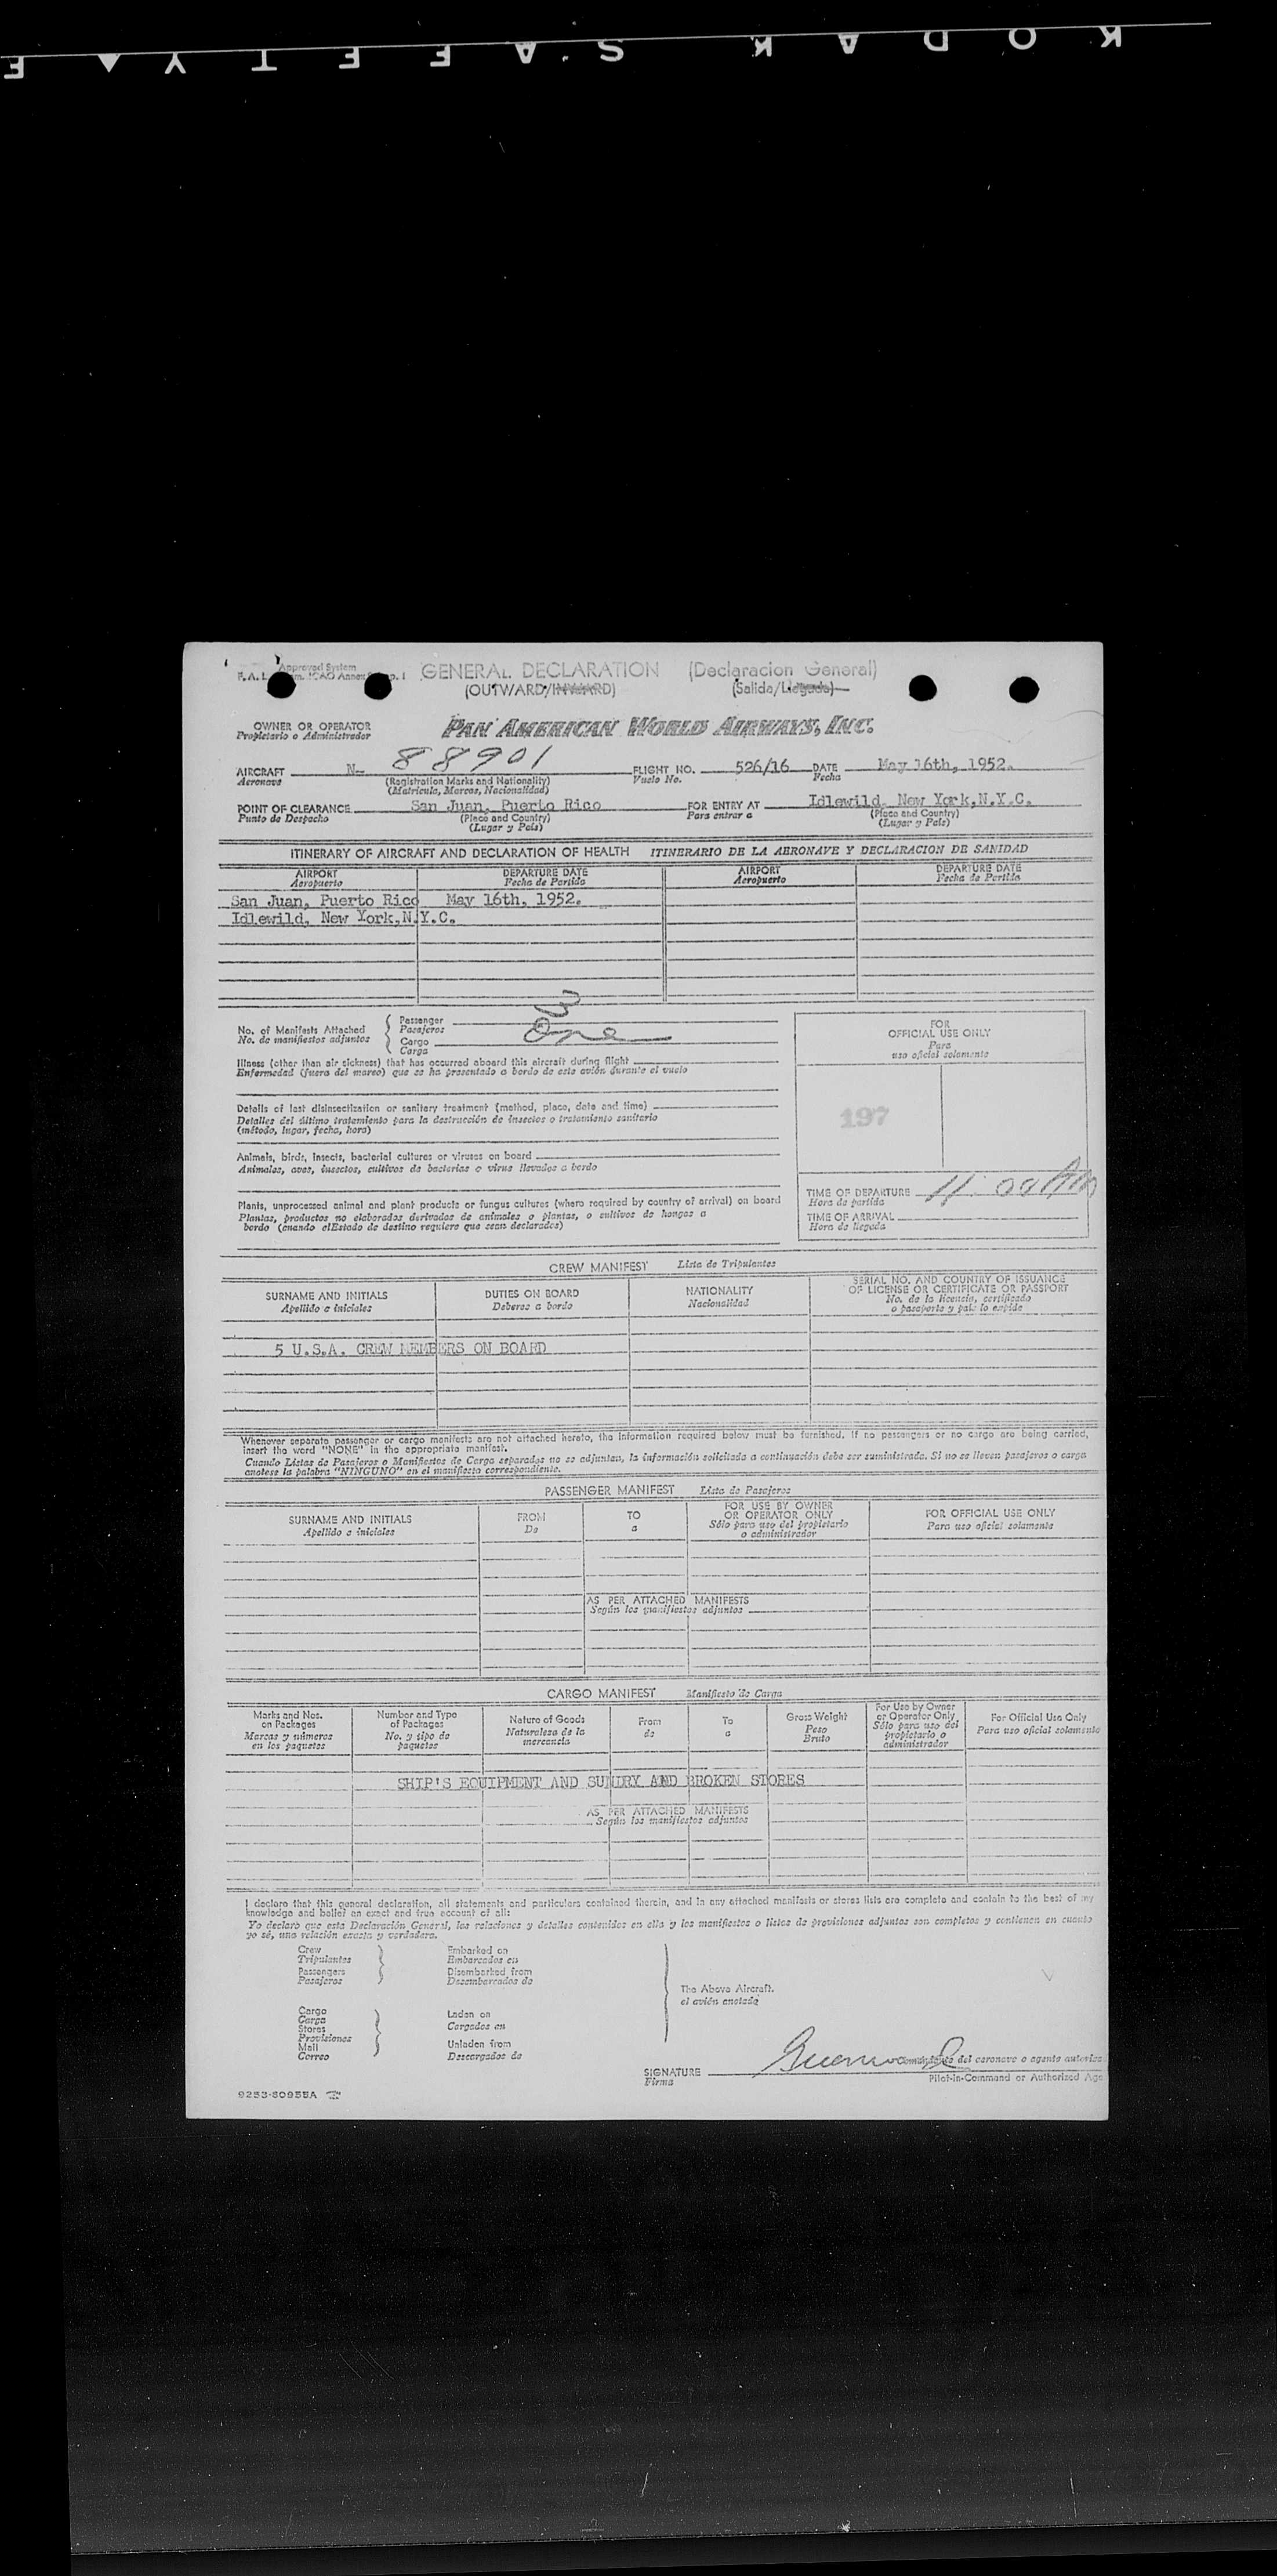 KODAK SAFETY F
Approved System
GENERAL DECLARATION (Declaracion General)
(OUTWARD/INWARD) (Salida/Llegada)
OWNER OR OPERATOR
Propietario o Administrador
PAN AMERICAN WORLD AIRWAYS, INC.
AIRCRAFT N- 88901 FLIGHT NO. 526/16 DATE May 16th, 1952.
Aeronave (Registration Marks and Nationality) Vuelo No. Fecha
(Matricula, Marcas, Nacionalidad)
POINT OF CLEARANCE San Juan, Puerto Rico FOR ENTRY AT Idlewild, New York, N.Y.C.
Punto de Despacho (Place and Country) Para entrar a (Place and Country)
(Lugar y País) (Lugar y País)
ITINERARY OF AIRCRAFT AND DECLARATION OF HEALTH ITINERARIO DE LA AERONAVE Y DECLARACION DE SANIDAD
AIRPORT DEPARTURE DATE AIRPORT DEPARTURE DATE
Aeropuerto Fecha de Partida Aeropuerto Fecha de Partida
San Juan, Puerto Rico May 16th, 1952.
Idlewild, New York, N.Y.C.
No. of Manifests Attached
No. de manifiestos adjuntos
Passenger 3
Pasajeros
Cargo One
Carga
Illness (other than air sickness) that has occurred aboard this aircraft during flight
Enfermedad (fuera del mareo) que se ha presentado a bordo de este avión durante el vuelo
Details of last disinsectization or sanitary treatment (method, place, date and time)
Detalles del último tratamiento para la destrucción de insectos o tratamiento sanitario
(método, lugar, fecha, hora)
Animals, birds, insects, bacterial cultures or viruses on board
Animales, aves, insectos, cultivos de bacterias o virus llevados a bordo
Plants, unprocessed animal and plant products or fungus cultures (where required by country of arrival) on board
Plantas, productos no elaborados derivados de animales o plantas, o cultivos de hongos a
bordo (cuando el Estado de destino requiere que sean declarados)
FOR
OFFICIAL USE ONLY
Para
uso oficial solamente
197
TIME OF DEPARTURE 11:00 AM
Hora de partida
TIME OF ARRIVAL
Hora de llegada
CREW MANIFEST Lista de Tripulantes
SURNAME AND INITIALS DUTIES ON BOARD NATIONALITY SERIAL NO. AND COUNTRY OF ISSUANCE
OF LICENSE OR CERTIFICATE OR PASSPORT
Apellido e iniciales Deberes a bordo Nacionalidad No. de la licencia, certificado
o pasaporte y país lo expide
5 U.S.A. CREW MEMBERS ON BOARD
Whenever separate passenger or cargo manifests are not attached hereto, the information required below must be furnished. If no passengers or no cargo are being carried,
insert the word "NONE" in the appropriate manifest.
Cuando Listas de Pasajeros o Manifiestos de Carga separados no se adjuntan, la información solicitada a continuación debe ser suministrada. Si no se lleven pasajeros o carga
anotese la palabra "NINGUNO" en el manifiesto correspondiente.
PASSENGER MANIFEST Lista de Pasajeros
SURNAME AND INITIALS FROM TO FOR USE BY OWNER OR OPERATOR ONLY FOR OFFICIAL USE ONLY
Apellido e iniciales De a Sólo para uso del propietario o administrador Para uso oficial solamente
AS PER ATTACHED MANIFESTS
Según los manifiestos adjuntos
CARGO MANIFEST Manifiesto de Carga
Marks and Nos. on Packages Number and Type of Packages Nature of Goods From To Gross Weight For Use by Owner or Operator Only For Official Use Only
Marcas y números en los paquetes No. y tipo de paquetes Naturaleza de la mercancía de a Peso Bruto Sólo para uso del propietario o administrador Para uso oficial solamente
SHIP'S EQUIPMENT AND SUNDRY AND BROKEN STORES
AS PER ATTACHED MANIFESTS
Según los manifiestos adjuntos
I declare that this general declaration, all statements and particulars contained therein, and in any attached manifests or stores lists are complete and contain to the best of my
knowledge and belief an exact and true account of all:
Yo declaro que esta Declaración General, las relaciones y detalles contenidos en ella y los manifiestos o listas de provisiones adjuntas son completos y contienen en cuanto
yo sé, una relación exacta y verdadera.
Crew Embarked on
Tripulantes Embarcados en
Passengers Disembarked from
Pasajeros Desembarcados de
The Above Aircraft.
el avión anotado
Cargo Laden on
Carga Cargados en
Stores
Provisiones
Mail Unladen from
Correo Descargados de
SIGNATURE
Firma
del aeronave o agente autoriza
Pilot-in-Command or Authorized Age
9253-50955A